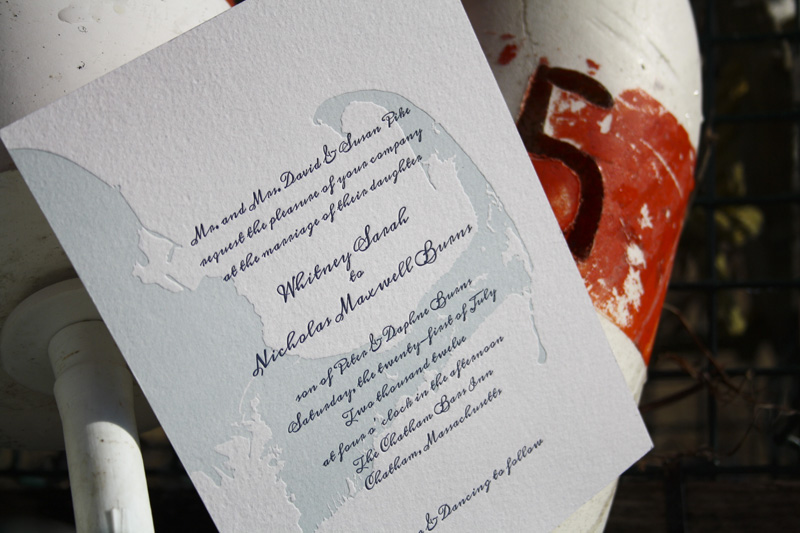 Mr. and Mrs. David & Susan Pike
request the pleasure of your company
at the marriage of their daughter
Whitney Sarah
to
Nicholas Maxwell Burns
son of Peter & Daphne Burns
Saturday, the twenty-first of July
Two thousand twelve
at four o'clock in the afternoon
The Chatham Bars Inn
Chatham, Massachusetts
& Dancing to follow
5